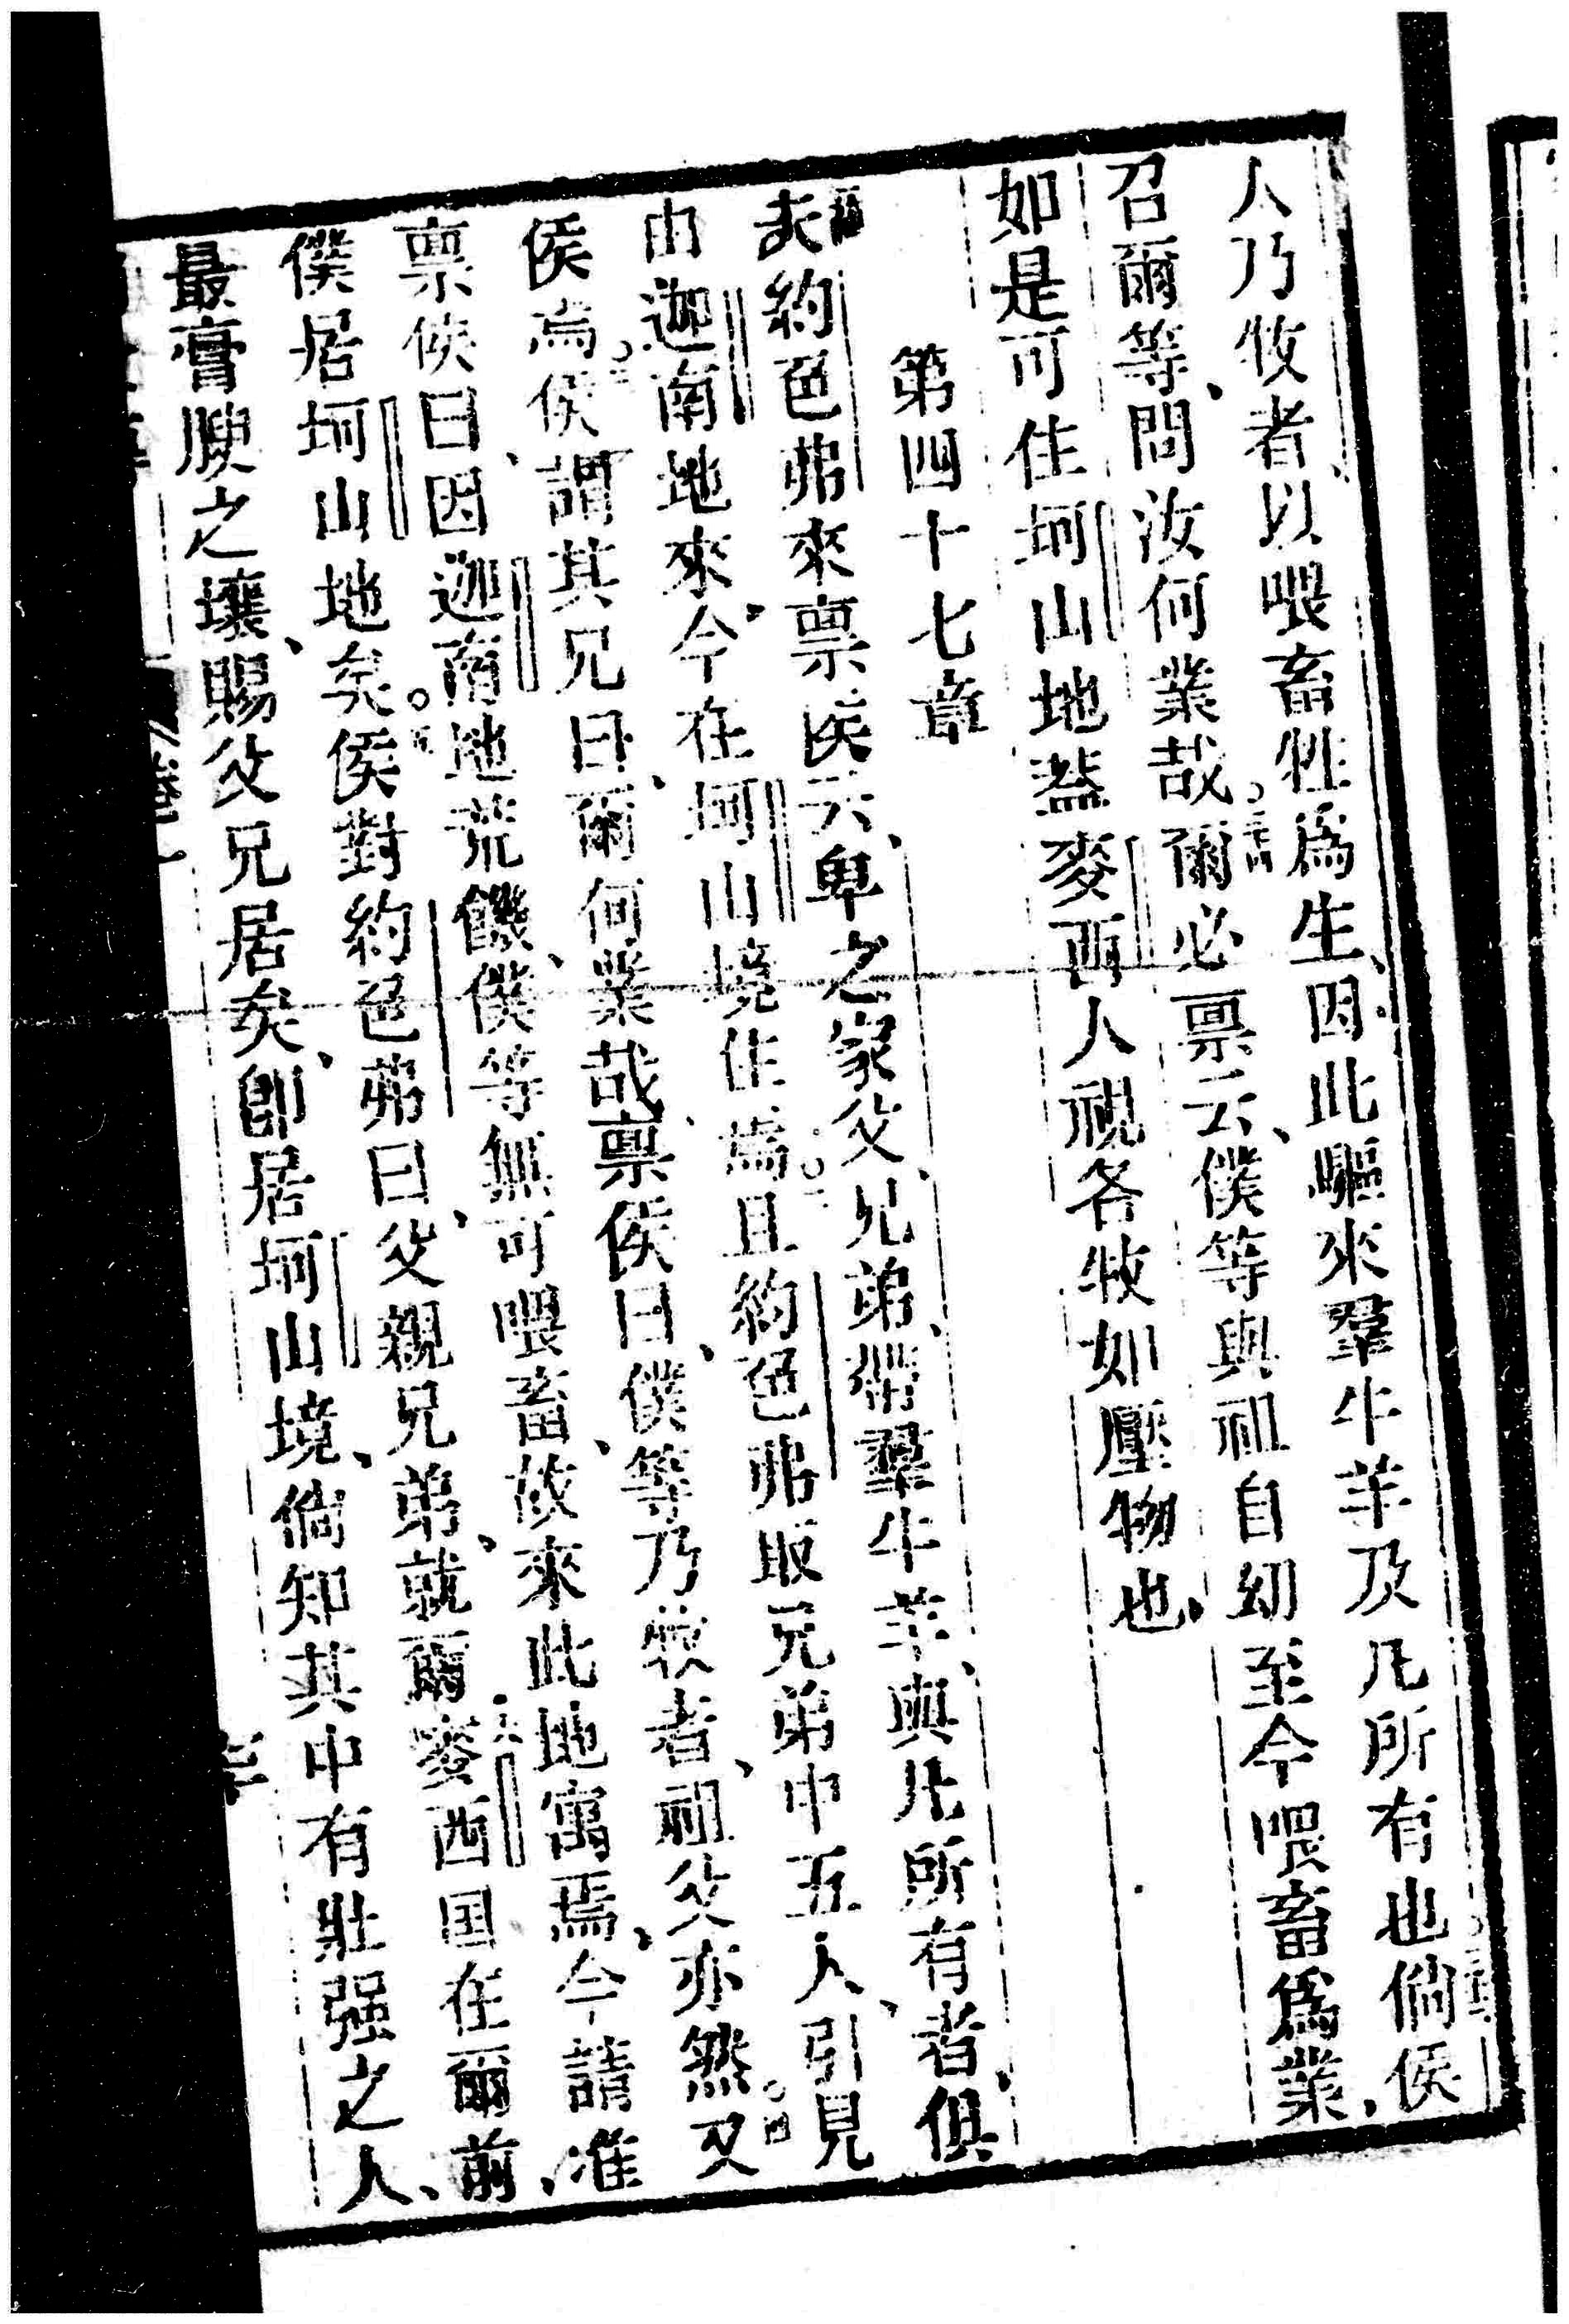 人乃牧者以喂畜牲爲生、因此驅來羣牛羊及凡所有也倘侯
召爾等、問汝何業哉。爾必禀云、僕等與祖自幼至今喂畜爲業、
如是可住坷山地葢麥西人視各牧如壓物也、
第四十七章
夫約色弗來禀侯云、卑之家父、兄弟、帶羣牛羊、與凡所有者、俱
由迦南地來、今在坷山境住焉。且約色弗取兄弟中五人、引見
侯焉。侯謂其兄曰、爾何業哉、禀侯曰、僕等乃牧者、祖父亦然。又
禀侯曰、因迦南地荒饑、僕等無可喂畜、故來此地寓焉、今請准
僕居坷山地矣。侯對約色弗曰、父親兄弟、就爾麥西国在爾前、
最膏腴之壤、賜父兄居矣、卽居坷山境、倘知其中有壯强之人、